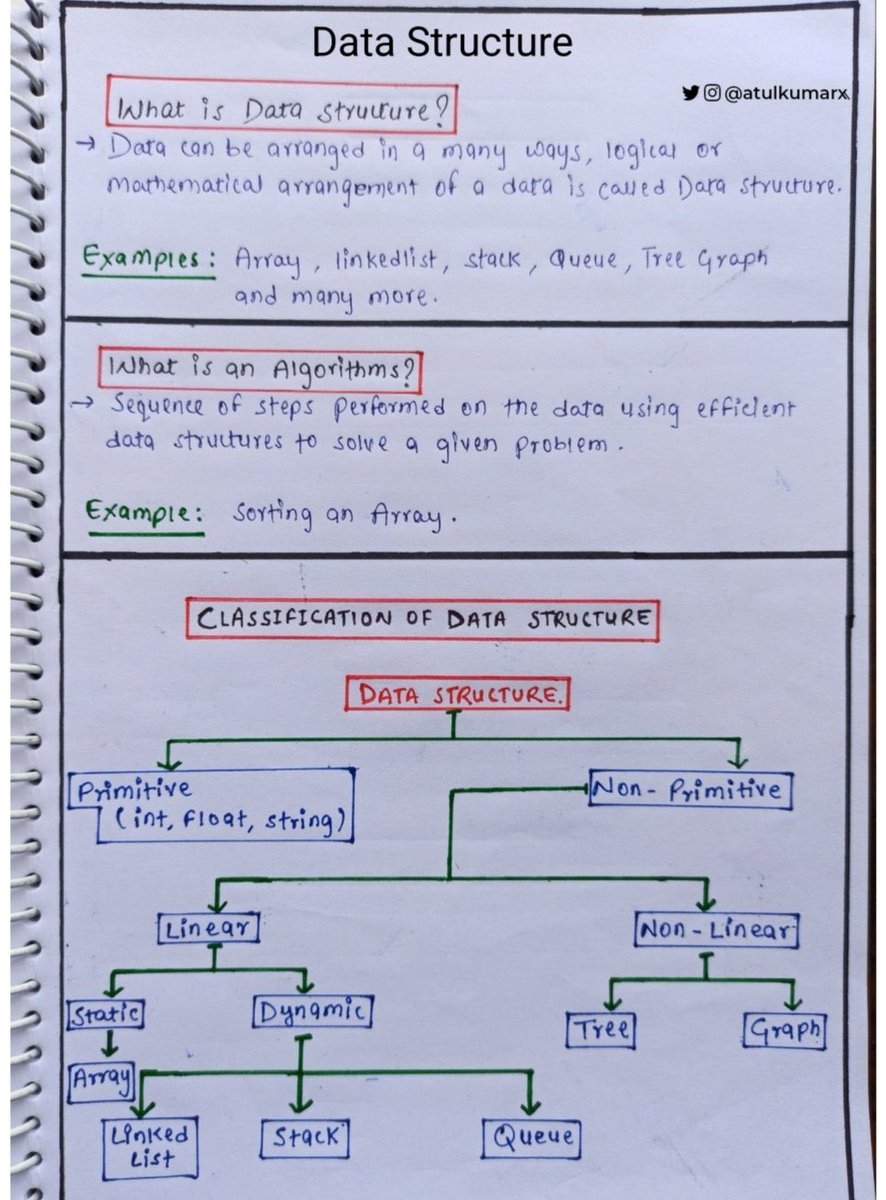 Data Structure
@atulkumarx
What is Data structure?
→ Data can be arranged in a many ways, logical or
mathematical arrangement of a data is called Data structure.
Examples: Array, linkedlist, stack, Queue, Tree Graph
and many more.
What is an Algorithms?
→ Sequence of steps performed on the data using efficient
data structures to solve a given problem.
Example: Sorting an Array.
CLASSIFICATION OF DATA STRUCTURE
DATA STRUCTURE.
Primitive
(int, float, string)
Non-Primitive
Linear
Non-Linear
Static
Dynamic
Tree
Graph
Array
Linked
List
Stack
Queue